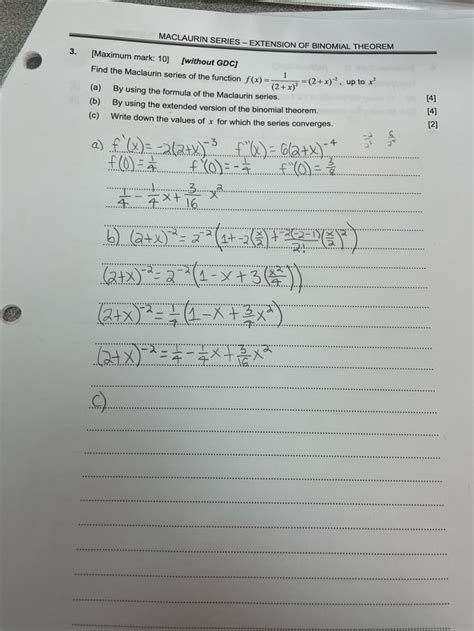 MACLAURIN SERIES – EXTENSION OF BINOMIAL THEOREM
3. [Maximum mark: 10] [without GDC]
Find the Maclaurin series of the function f(x) = 1/(2+x)² = (2+x)⁻², up to x²
(a) By using the formula of the Maclaurin series. [4]
(b) By using the extended version of the binomial theorem. [4]
(c) Write down the values of x for which the series converges. [2]
a) f'(x) = -2(2+x)⁻³ f"(x) = 6(2+x)⁻⁴
f(0) = 1/4 f'(0) = -1/4 f"(0) = 3/8
1/4 - 1/4 x + 3/16 x²
b) (2+x)⁻² = 2⁻²(1 + -2(x/2) + -2(-2-1)/2! (x/2)²)
(2+x)⁻² = 2⁻²(1 - x + 3(x²/4))
(2+x)⁻² = 1/4 (1 - x + 3/4 x²)
(2+x)⁻² = 1/4 - 1/4 x + 3/16 x²
c)